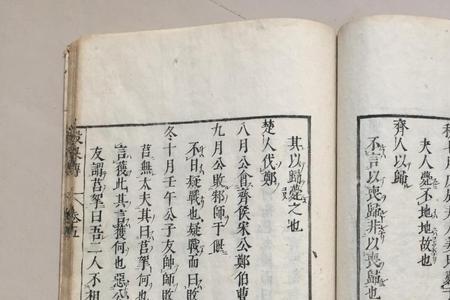 夫人薨不地地故也
齊人以歸
不言以喪歸非以喪歸也
其以歸薨之也
楚人伐鄭
八月公會齊侯宋公鄭伯曹
九月公敗邾師于偃
不日疑戰也疑戰而曰敗
冬十月壬午公子友帥師敗
莒無大夫其曰莒挐何
言獲此其言獲何也惡公
友謂莒挐曰吾二人不相
穀梁傳 卷五